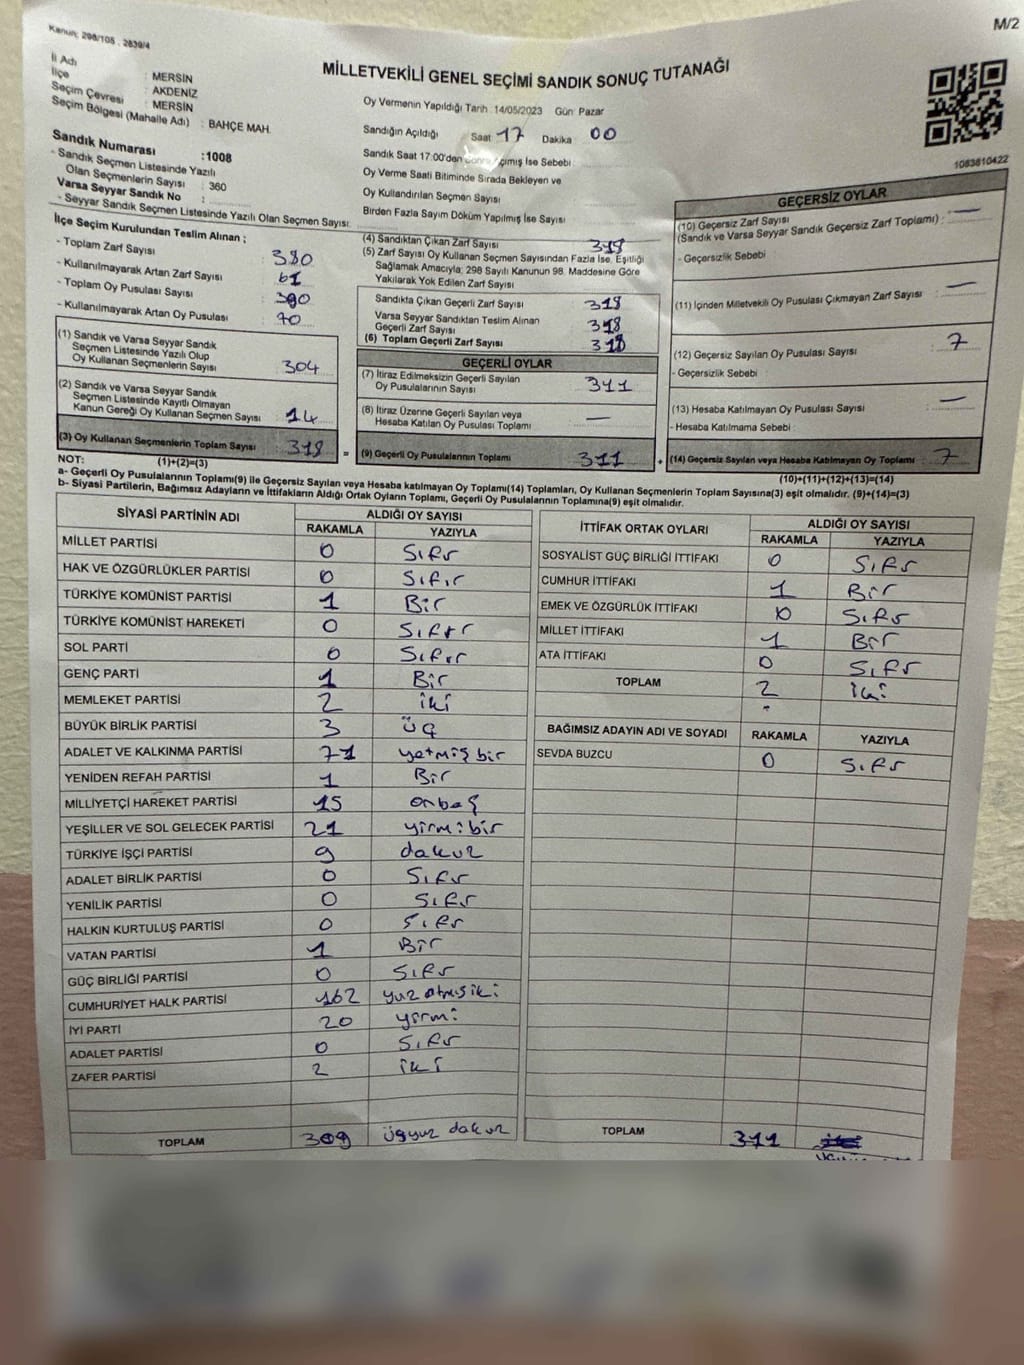 Kanun; 298/105 - 2839/4
M/2
MİLLETVEKİLİ GENEL SEÇİMİ SANDIK SONUÇ TUTANAĞI
İl Adı : MERSİN
İlçe : AKDENİZ
Seçim Çevresi : MERSİN
Seçim Bölgesi (Mahalle Adı) : BAHÇE MAH.
Sandık Numarası : 1008
- Sandık Seçmen Listesinde Yazılı
Olan Seçmenlerin Sayısı : 360
Varsa Seyyar Sandık No :
- Seyyar Sandık Seçmen Listesinde Yazılı Olan Seçmen Sayısı:
Oy Vermenin Yapıldığı Tarih : 14/05/2023 Gün: Pazar
Sandığın Açıldığı Saat 17 Dakika 00
Sandık Saat 17:00'den Sonra Açılmış İse Sebebi :
Oy Verme Saati Bitiminde Sırada Bekleyen ve
Oy Kullandırılan Seçmen Sayısı
Birden Fazla Sayım Döküm Yapılmış İse Sayısı
1083810422
İlçe Seçim Kurulundan Teslim Alınan ;
- Toplam Zarf Sayısı : 380
- Kullanılmayarak Artan Zarf Sayısı : 61
- Toplam Oy Pusulası Sayısı : 390
- Kullanılmayarak Artan Oy Pusulası : 70
(1) Sandık ve Varsa Seyyar Sandık
Seçmen Listesinde Yazılı Olup
Oy Kullanan Seçmenlerin Sayısı : 304
(2) Sandık ve Varsa Seyyar Sandık
Seçmen Listesinde Kayıtlı Olmayan
Kanun Gereği Oy Kullanan Seçmen Sayısı : 14
(3) Oy Kullanan Seçmenlerin Toplam Sayısı 318
(4) Sandıktan Çıkan Zarf Sayısı 318
(5) Zarf Sayısı Oy Kullanan Seçmen Sayısından Fazla İse, Eşitliği
Sağlamak Amacıyla; 298 Sayılı Kanunun 98. Maddesine Göre
Yakılarak Yok Edilen Zarf Sayısı
Sandıkta Çıkan Geçerli Zarf Sayısı : 318
Varsa Seyyar Sandıktan Teslim Alınan
Geçerli Zarf Sayısı : 318
(6) Toplam Geçerli Zarf Sayısı : 318
GEÇERLİ OYLAR
(7) İtiraz Edilmeksizin Geçerli Sayılan
Oy Pusulalarının Sayısı : 311
(8) İtiraz Üzerine Geçerli Sayılan veya
Hesaba Katılan Oy Pusulası Toplamı : —
= (9) Geçerli Oy Pusulalarının Toplamı 311
GEÇERSİZ OYLAR
(10) Geçersiz Zarf Sayısı
(Sandık ve Varsa Seyyar Sandık Geçersiz Zarf Toplamı) : —
- Geçersizlik Sebebi :
(11) İçinden Milletvekili Oy Pusulası Çıkmayan Zarf Sayısı : —
(12) Geçersiz Sayılan Oy Pusulası Sayısı : 7
- Geçersizlik Sebebi :
(13) Hesaba Katılmayan Oy Pusulası Sayısı : —
- Hesaba Katılmama Sebebi :
+ (14) Geçersiz Sayılan veya Hesaba Katılmayan Oy Toplamı : 7
NOT: (1)+(2)=(3)
(10)+(11)+(12)+(13)=(14)
a- Geçerli Oy Pusulalarının Toplamı(9) ile Geçersiz Sayılan veya Hesaba katılmayan Oy Toplamı(14) Toplamları, Oy Kullanan Seçmenlerin Toplam Sayısına(3) eşit olmalıdır. (9)+(14)=(3)
b- Siyasi Partilerin, Bağımsız Adayların ve İttifakların Aldığı Ortak Oyların Toplamı, Geçerli Oy Pusulalarının Toplamına(9) eşit olmalıdır.
SİYASİ PARTİNİN ADI ALDIĞI OY SAYISI
RAKAMLA YAZIYLA
MİLLET PARTİSİ 0 Sıfır
HAK VE ÖZGÜRLÜKLER PARTİSİ 0 Sıfır
TÜRKİYE KOMÜNİST PARTİSİ 1 Bir
TÜRKİYE KOMÜNİST HAREKETİ 0 Sıfır
SOL PARTİ 0 Sıfır
GENÇ PARTİ 1 Bir
MEMLEKET PARTİSİ 2 iki
BÜYÜK BİRLİK PARTİSİ 3 üç
ADALET VE KALKINMA PARTİSİ 71 yetmiş bir
YENİDEN REFAH PARTİSİ 1 Bir
MİLLİYETÇİ HAREKET PARTİSİ 15 onbeş
YEŞİLLER VE SOL GELECEK PARTİSİ 21 yirmibir
TÜRKİYE İŞÇİ PARTİSİ 9 dokuz
ADALET BİRLİK PARTİSİ 0 Sıfır
YENİLİK PARTİSİ 0 Sıfır
HALKIN KURTULUŞ PARTİSİ 0 Sıfır
VATAN PARTİSİ 1 Bir
GÜÇ BİRLİĞİ PARTİSİ 0 Sıfır
CUMHURİYET HALK PARTİSİ 162 yüz atmış iki
İYİ PARTİ 20 yirmi
ADALET PARTİSİ 0 Sıfır
ZAFER PARTİSİ 2 iki
TOPLAM 309 üçyuz dokuz
İTTİFAK ORTAK OYLARI ALDIĞI OY SAYISI
RAKAMLA YAZIYLA
SOSYALİST GÜÇ BİRLİĞİ İTTİFAKI 0 Sıfır
CUMHUR İTTİFAKI 1 Bir
EMEK VE ÖZGÜRLÜK İTTİFAKI 0 Sıfır
MİLLET İTTİFAKI 1 Bir
ATA İTTİFAKI 0 Sıfır
TOPLAM 2 iki
BAĞIMSIZ ADAYIN ADI VE SOYADI RAKAMLA YAZIYLA
SEVDA BUZCU 0 Sıfır
TOPLAM 311